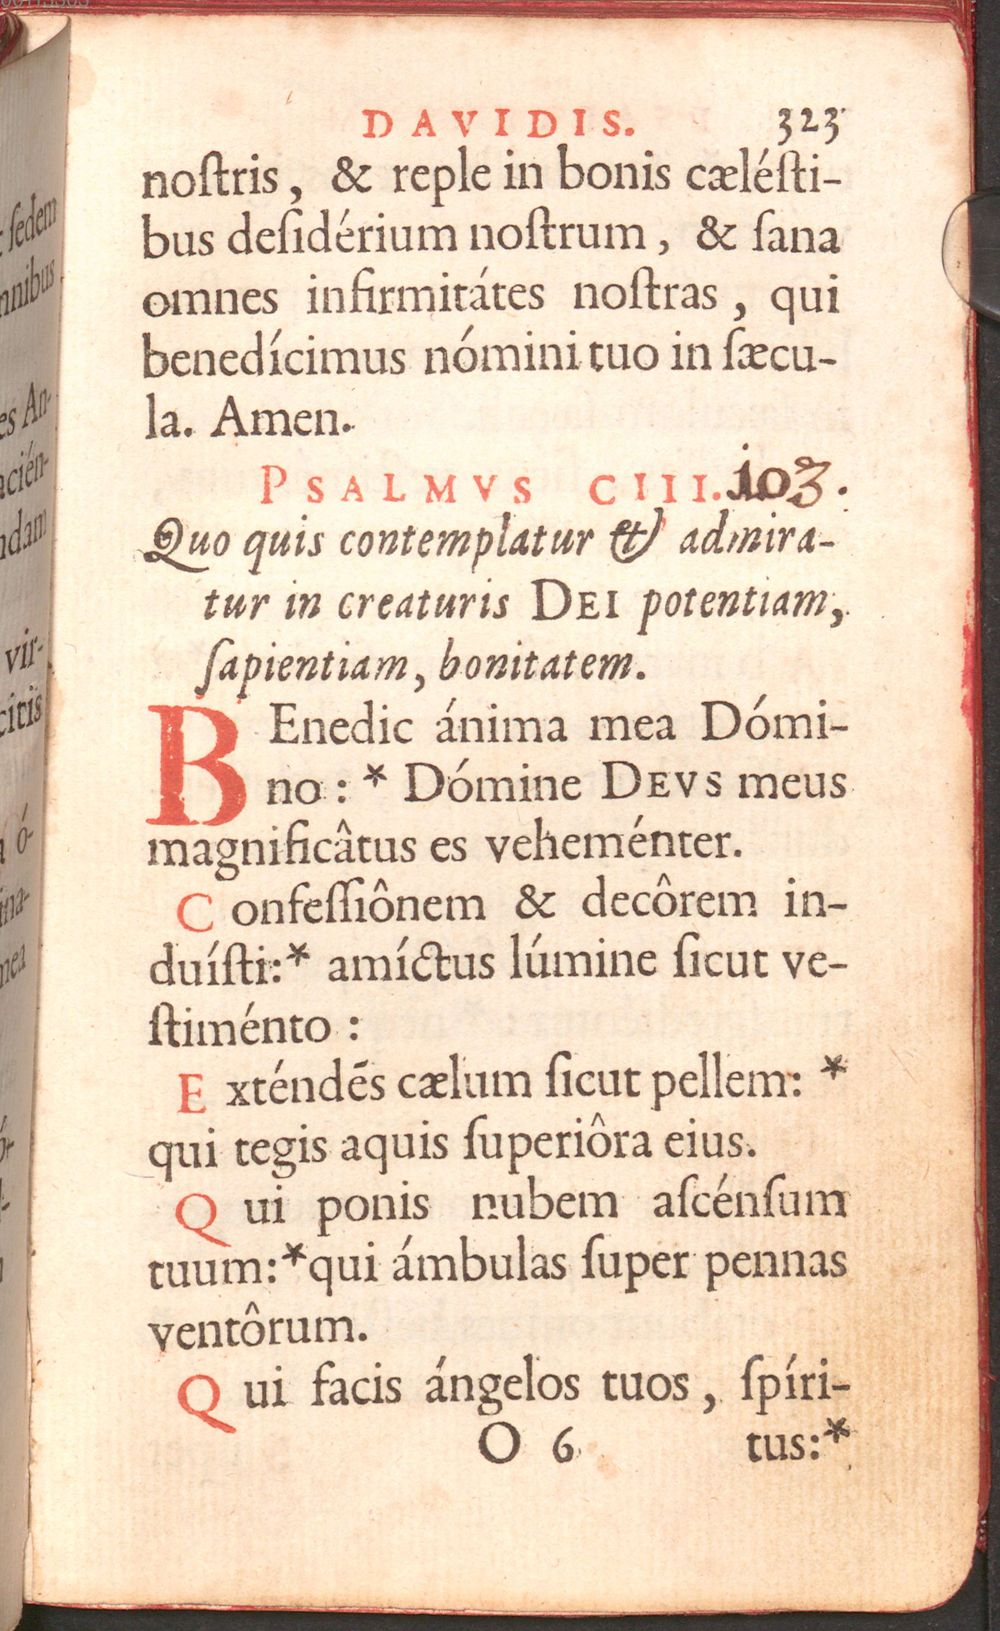 DAVIDIS. 323
noſtris, & reple in bonis cæléſti-
bus deſidérium noſtrum, & ſana
omnes infirmitátes noſtras, qui
benedícimus nómini tuo in ſæcu-
la. Amen.
PSALMVS CIII. 103.
Quo quis contemplatur & admira-
tur in creaturis DEI potentiam,
ſapientiam, bonitatem.
BEnedic ánima mea Dómi-
no: * Dómine DEVS meus
magnificâtus es veheménter.
Confeſſiônem & decôrem in-
duíſti:* amíctus lúmine ſicut ve-
ſtiménto:
Exténdēs cælum ſicut pellem: *
qui tegis aquis ſuperiôra eius.
Qui ponis nubem aſcénſum
tuum:* qui ámbulas ſuper pennas
ventôrum.
Qui facis ángelos tuos, ſpíri-
O 6 tus:*
ſedem
mnibus
es An-
acién-
ndam
vir-
citis
mea